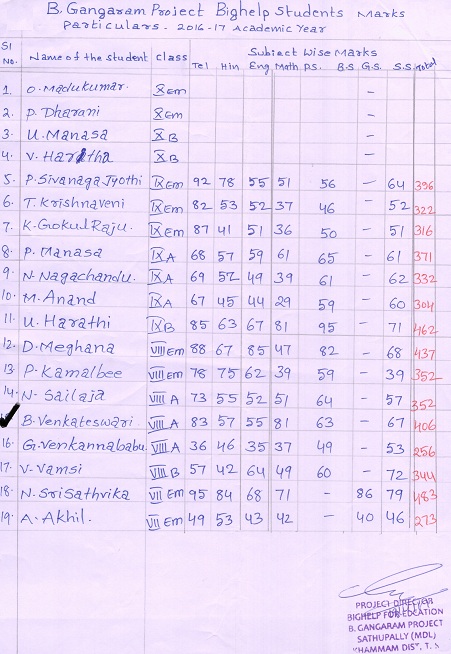 B. Gangaram Project Bighelp Students Marks
Particulars - 2016-17 Academic Year
Sl No. Name of the student Class Subject Wise Marks
Tel Hin Eng Math PS. B.S G.S. S.S Total
1. O. Madukumar. X Em -
2. P. Dharani X Em -
3. U. Manasa X B -
4. V. Haritha X B -
5. P. Sivanaga Jyothi IX Em 92 78 55 51 56 - 64 396
6. T. Krishnaveni IX Em 82 53 52 37 46 - 52 322
7. K. Gokul Raju. IX Em 87 41 51 36 50 - 51 316
8. P. Manasa IX A 68 57 59 61 65 - 61 371
9. N. Nagachandu. IX A 69 52 49 39 61 - 62 332
10. M. Anand IX A 67 45 44 29 59 - 60 304
11. U. Harathi IX B 85 63 67 81 95 - 71 462
12. D. Meghana VIII Em 88 67 85 47 82 - 68 437
13 P. Kamalbee VIII Em 78 75 62 39 59 - 39 352
14. N. Sailaja VIII A 73 55 52 51 64 - 57 352
B. Venkateswari VIII A 83 57 55 81 63 - 67 406
16. G. Venkannababu VIII A 36 46 35 37 49 - 53 256
17. V. Vamsi VIII B 57 42 64 49 60 - 72 344
18. N. Sri Sathvika VII Em 95 84 68 71 - 86 79 483
19. A. Akhil. VII Em 49 53 43 42 - 40 46 273
PROJECT DIRECTOR
BIGHELP FOR EDCATION
B. GANGARAM PROJECT
SATHUPALLY (MDL)
KHAMMAM DIST, T.S